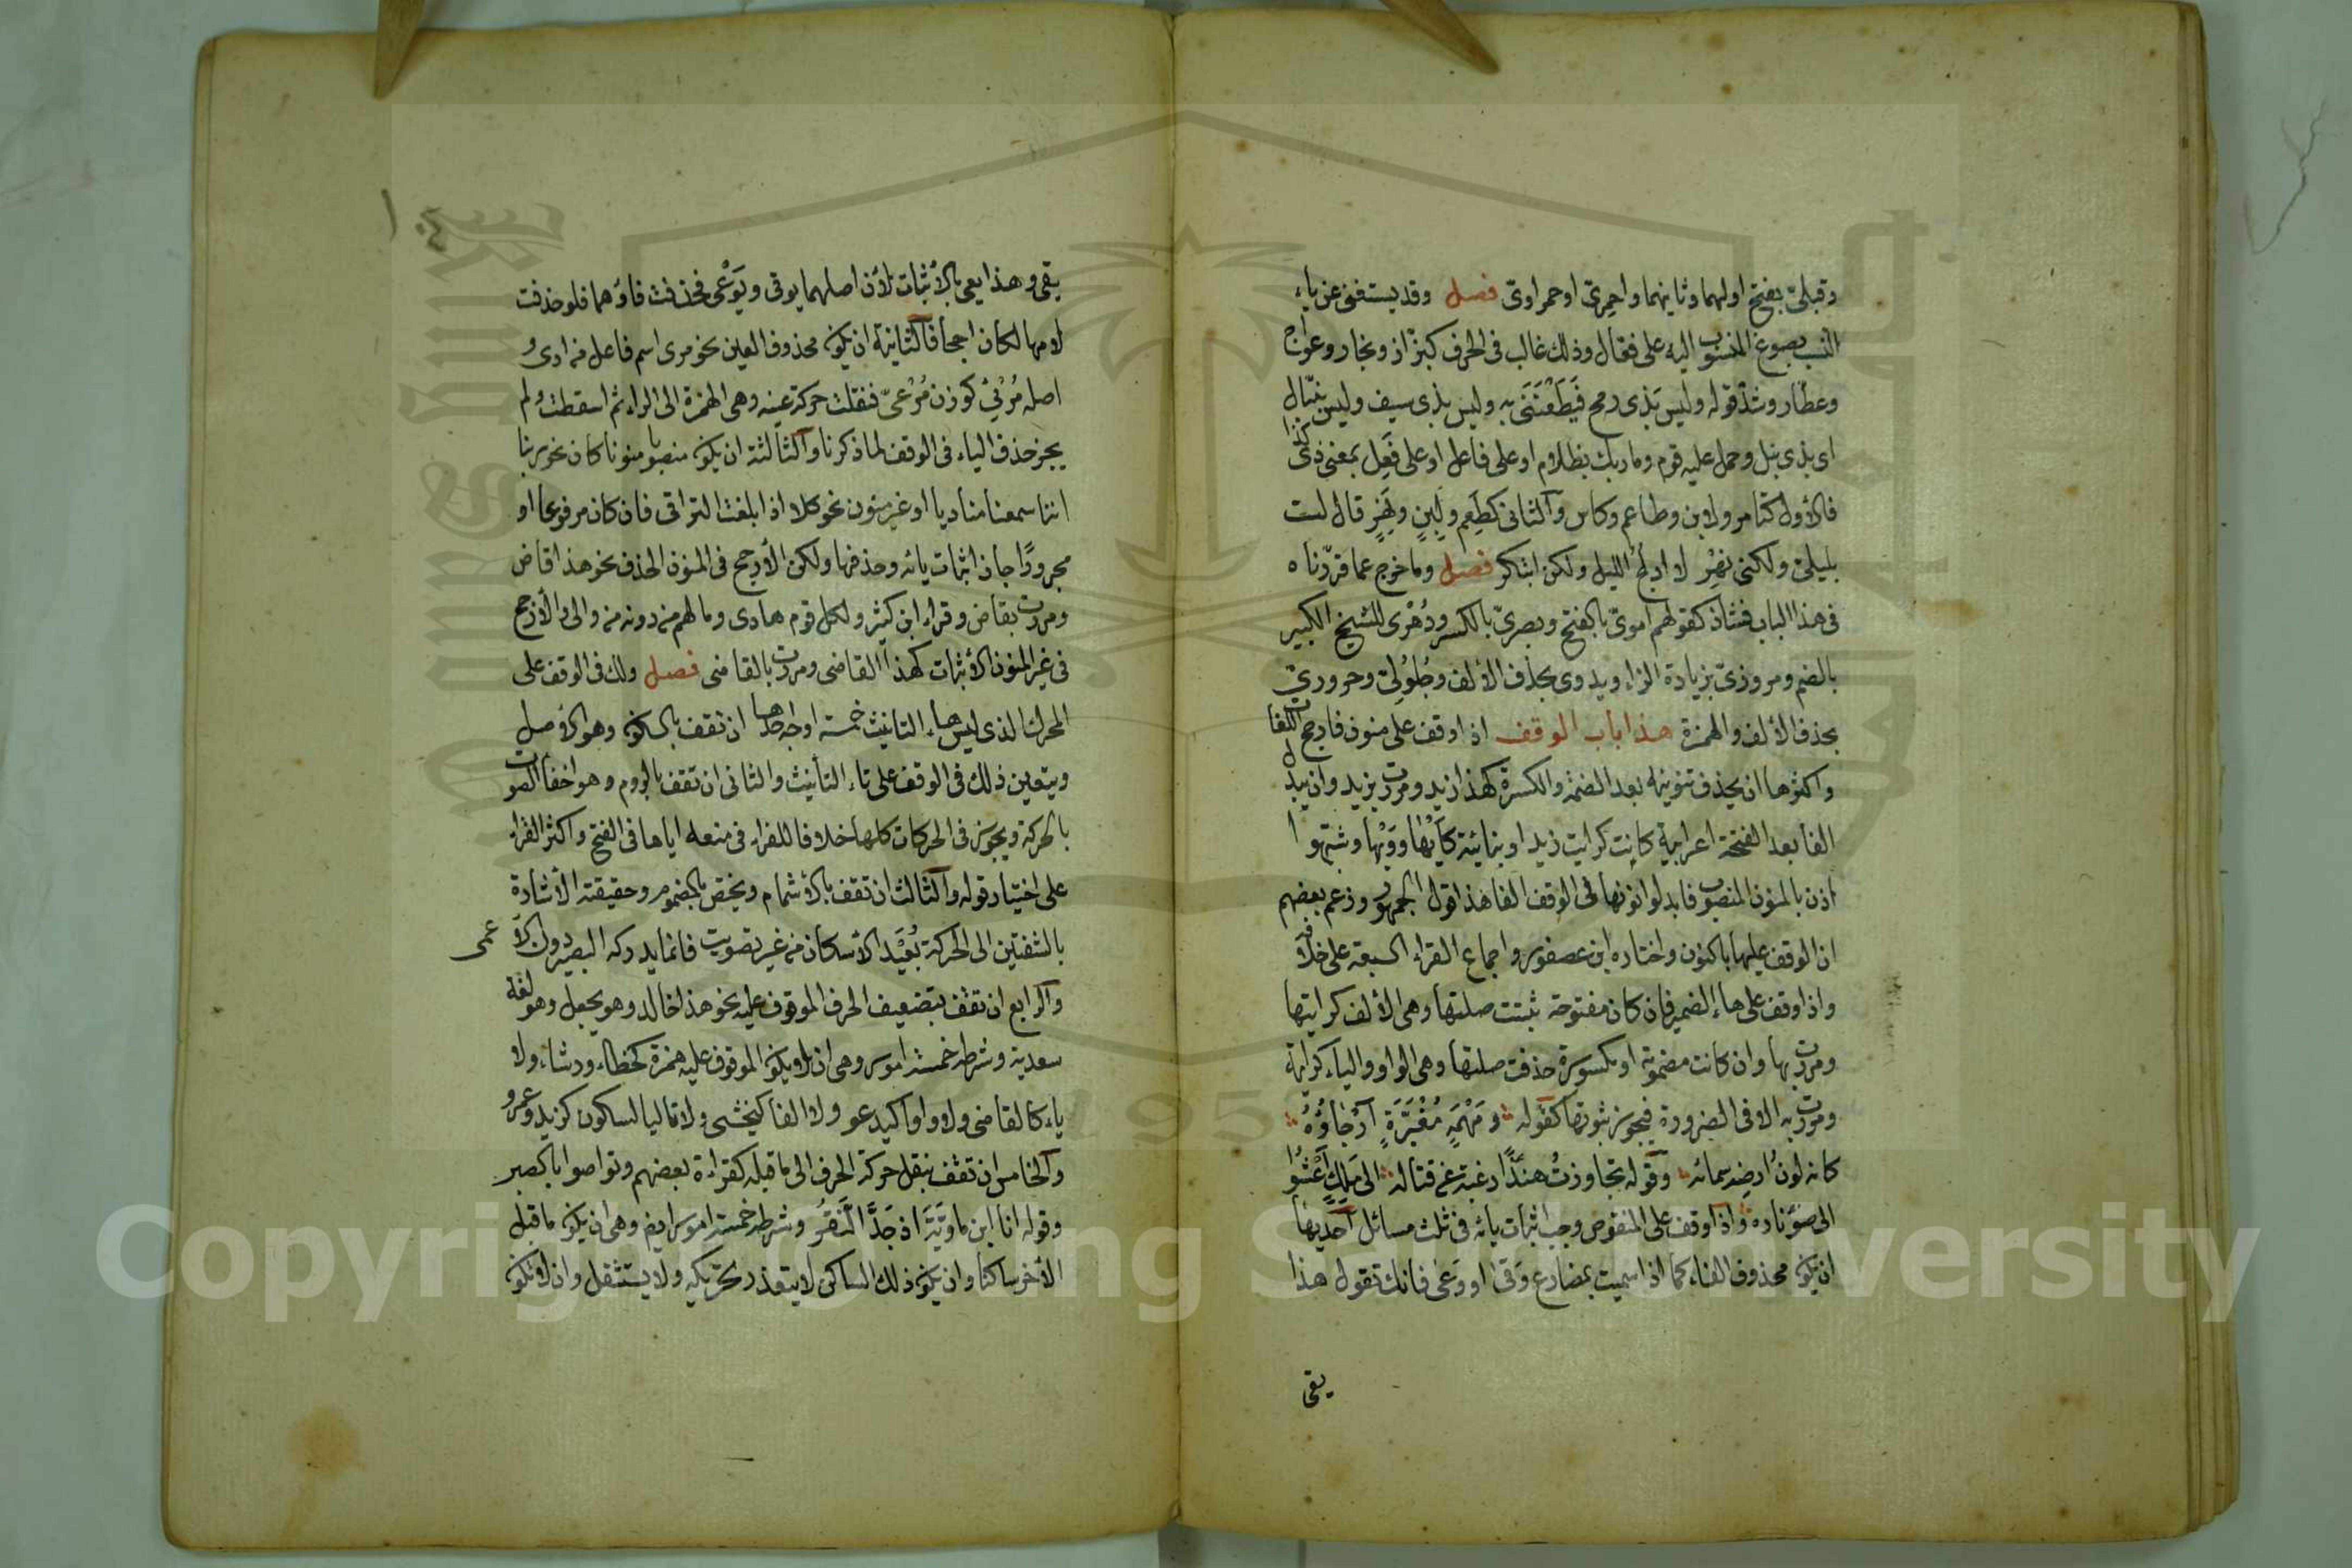 وقبليّ بفتح اولهما وثانيهما واحمريّ او حمراويّ فصل وقد يستغنى عن ياء
النسب بصوغ المنسوب اليه على فعّال وذلك غالب في الحرف كبزّاز ونجّار وعوّاج
وعطّار وشذّ قوله وليس بذى رمح فَيَطْعُنَنى به وليس بذى سيف وليس بنبّال
اى بذى نبل وحمل عليه قوم وما ربك بظلام او على فاعل او على فَعِل بمعنى ذى كذا
فالاول كتامر ولابن وطاعم وكاس والثانى كطَعِم ولَبِن ونَهِر قال لست
بليليّ ولكنى نَهِر لا ادلج الليل ولكن ابتكر فصل وما خرج عما قرّرناه
فى هذا الباب فشاذ كقولهم اموىّ بالفتح وبصرىّ بالكسر ودُهْرى للشيخ الكبير
بالضم ومروزىّ بزيادة الزاء وبدوى بحذف الالف وجُلُولىّ وحرورىّ
بحذف الالف والهمزة هذا باب الوقف اذا وقف على منون فارجح اللغات
واكثرها ان يحذف تنوينه بعد الضمة والكسرة كهذا زيد ومررت بزيد وان يبدل
الفا بعد الفتحة اعرابية كانت كرايت زيدا او بنائية كايْهَا ووَيْها وشبهوا
اذن بالمنون المنصوب فابدلوا نونها فى الوقف الفا هذا قول الجمهور وزعم بعضهم
ان الوقف عليها بالنون واختاره ابن عصفور واجماع القراء السبعة على خلافه
واذا وقف على هاء الضمير فان كان مفتوحة ثبتت صلتها وهى الالف كرايتها
ومررت بها وان كانت مضمومة او مكسورة حذفت صلتها وهى الواو والياء كرايته
ومررت به الا فى الضرورة فيجوز ثبوتها كقوله ومَهْمَهٍ مُغْبَرَّةٍ اَرْجَاؤُهُ
كانه لونُ ارضِه سمائه وقوله تجاوزتُ هندًا رغبة عن قتاله الى مَلِكٍ اَعْشُوا
الى ضوء ناره واذا وقف على المنقوص وجب اثبات يائه فى ثلث مسائل احديها
ان يكون محذوف الفاء كما اذا سميت بمضارع وَقى او وَعَى فانك تقول هذا
يقى
١٠٤
يقى وهذا يعى بالاثبات لان اصلهما يوقى ويَوْعى فحذفت فاؤهما فلو حذفت
لامها لكان اجحافا الثانية ان يكون محذوف العين نحو مرى اسم فاعل من ارى و
اصله مُرْئِىٌ كوزن مُرْعىّ فنقلت حركة عينه وهى الهمزة الى الراء ثم اسقطت ولم
يجز حذف الياء فى الوقف لما ذكرنا والثالثة ان يكون منصوبا منونا كان نحو ربنا
اننا سمعنا مناديا او غير منون نحو كلا اذا بلغت التراقى فان كان مرفوعا او
مجرورًا جاز اثبات يائه وحذفها ولكن الارجح فى المنون الحذف نحو هذا قاض
ومررت بقاض وقراء ابن كثير ولكل قوم هادى وما لهم من دونه من والى والارجح
فى غير المنون الاثبات كهذا القاضى ومررت بالقاضى فصل ولك فى الوقف على
المحرك الذى ليس هاء التانيث خمسة اوجه احدها ان تقف بالسكون وهو الاصل
ويتعين ذلك فى الوقف على تاء التأنيث والثانى ان تقف بالروم وهو اخفاء الصوت
بالحركة ويجوز فى الحركات كلها خلافا للفراء فى منعه اياها فى الفتح واكثر القراء
على اختيار قوله والثالث ان تقف بالاشمام ويختص بالمضموم وحقيقته الاشارة
بالشفتين الى الحركة بُعَيْد الاسكان من غير تصويت فانما يدركه البصير دون الاعمى
والرابع ان تقف بتضعيف الحرف الموقوف عليه نحو هذا خالد وهو يجعل وهو لغة
سعدية وشرطه خمسة امور وهى ان لا يكون الموقوف عليه همزة كخطاء ورشاء ولا
ياء كالقاضى ولا واوا كيدعو ولا الفا كيخشى ولا تاليا لساكون كزيد وعمرو
والخامس ان تقف بنقل حركة الحرف الى ما قبله كقراءة بعضهم وتواصوا بالصبر
وقوله انا ابن ماوِيَّةَ اذ جَدَّ النَّقُرُ وشرطه خمسة امور ايض وهى ان يكون ما قبل
الاخر ساكنا وان يكون ذلك الساكن لا يتعذر تحريكه ولا يستثقل وان لا تكون
Copyright © King Saud University
1957